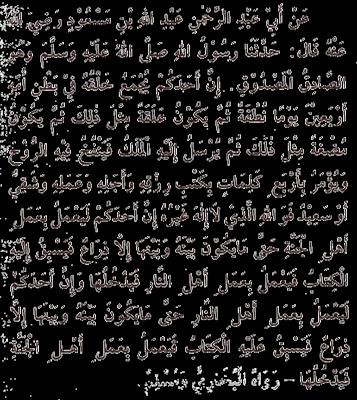 عَنْ أَبِيْ عَبْدِ الرَّحْمٰنِ عَبْدِ اللهِ بْنِ مَسْعُوْدٍ رَضِيَ اللهُ
عَنْهُ قَالَ: حَدَّثَنَا رَسُوْلُ اللهِ صَلَّى اللهُ عَلَيْهِ وَسَلَّمَ وَهُوَ
الصَّادِقُ الْمَصْدُوْقُ. إِنَّ أَحَدَكُمْ يُجْمَعُ خَلْقُهُ فِيْ بَطْنِ أُمِّهِ
أَرْبَعِيْنَ يَوْمًا نُطْفَةً ثُمَّ يَكُوْنُ عَلَقَةً مِثْلَ ذٰلِكَ ثُمَّ يَكُوْنُ
مُضْغَةً مِثْلَ ذٰلِكَ ثُمَّ يُرْسَلُ إِلَيْهِ الْمَلَكُ فَيَنْفُخُ فِيْهِ الرُّوْحَ
وَيُؤْمَرُ بِأَرْبَعِ كَلِمَاتٍ بِكَتْبِ رِزْقِهِ وَأَجَلِهِ وَعَمَلِهِ وَشَقِيٌّ
أَوْ سَعِيْدٌ فَوَ اللهِ الَّذِيْ لَا إِلٰهَ غَيْرُهُ إِنَّ أَحَدَكُمْ لَيَعْمَلُ بِعَمَلِ
أَهْلِ الْجَنَّةِ حَتَّى مَايَكُوْنَ بَيْنَهُ وَبَيْنَهَا إِلَّا ذِرَاعٌ فَيَسْبِقُ إِلَيْهِ
الْكِتَابُ فَيَعْمَلُ بِعَمَلِ أَهْلِ النَّارِ فَيَدْخُلُهَا وَإِنَّ أَحَدَكُمْ
لَيَعْمَلُ بِعَمَلِ أَهْلِ النَّارِ حَتَّى مَايَكُوْنَ بَيْنَهُ وَبَيْنَهَا إِلَّا
ذِرَاعٌ فَيَسْبِقُ عَلَيْهِ الْكِتَابُ فَيَعْمَلُ بِعَمَلِ أَهْلِ الْجَنَّةِ
فَيَدْخُلُهَا – رَوَاهُ الْبُخَارِيُّ وَمُسْلِمٌ